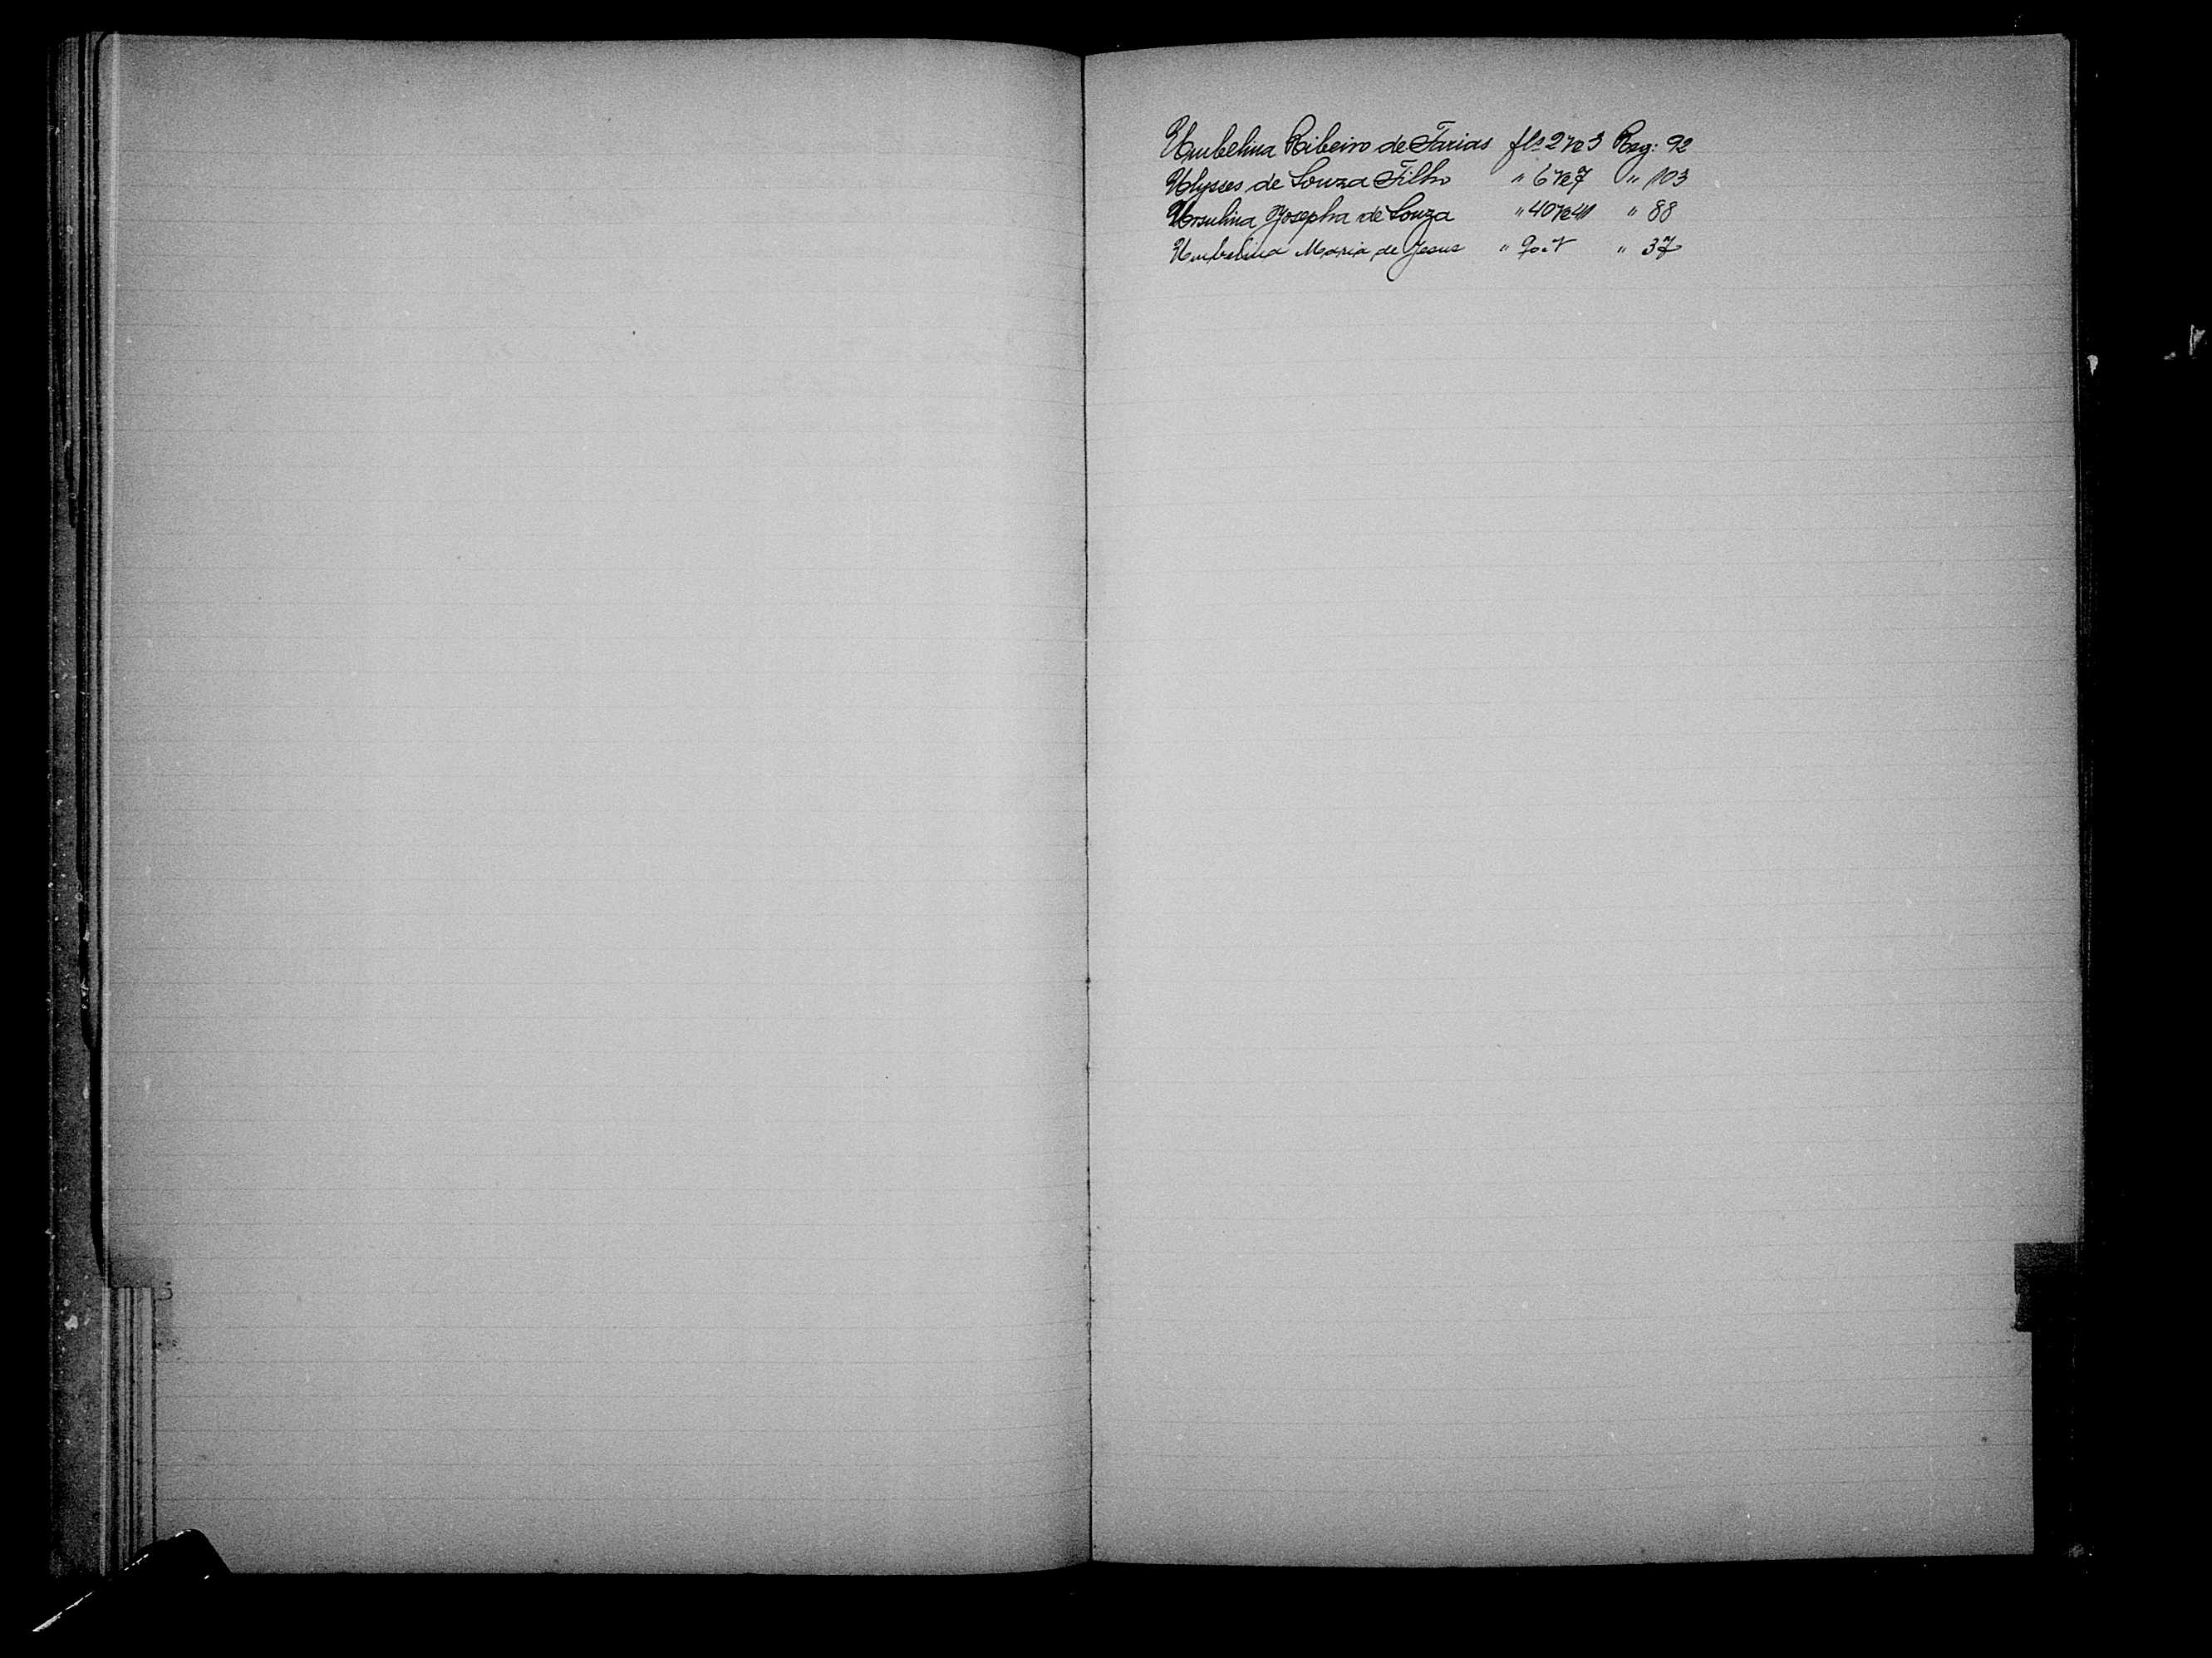 Umbelina Ribeiro de Farias fls 2 v e 3 Reg: 92
Ulysses de Souza Filho " 6 v e 7 " 103
Ursulina Josepha de Souza " 40 v e 41 " 88
Umbelina Maria de Jesus " " 37